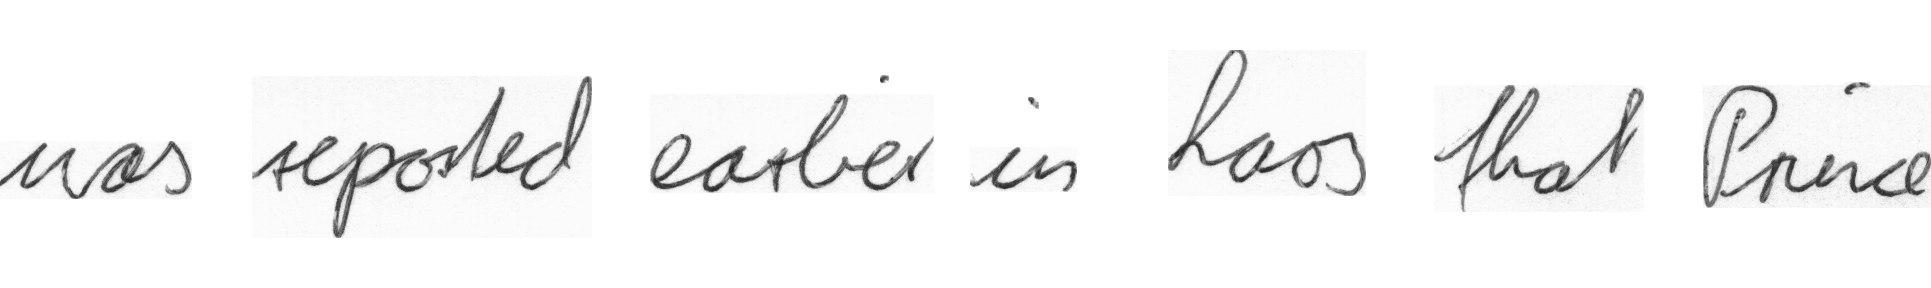 was reported earlier in Laos that Prince